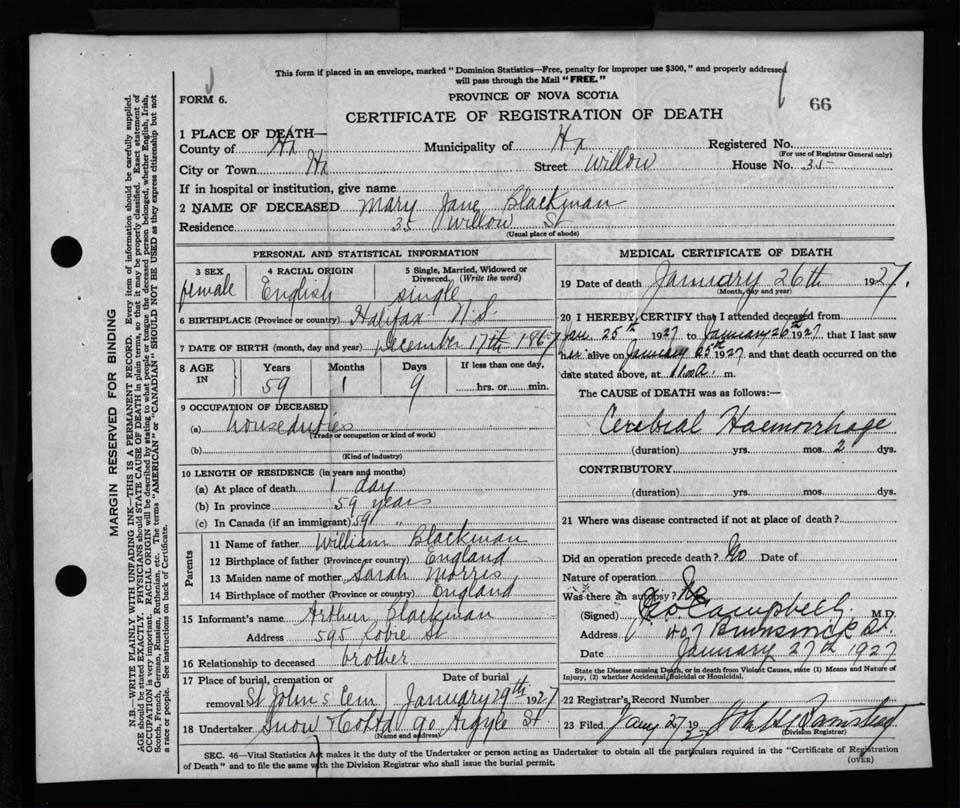 This form if placed in an envelope, marked "Dominion Statistics—Free, penalty for improper use $300," and properly addressed
will pass through the Mail "FREE."
FORM 6.
PROVINCE OF NOVA SCOTIA
66
CERTIFICATE OF REGISTRATION OF DEATH
1 PLACE OF DEATH—
County of Hx Municipality of Hx Registered No.
(For use of Registrar General only)
City or Town Hx Street Willow House No. 35
If in hospital or institution, give name
2 NAME OF DECEASED Mary Jane Blackman
Residence 35 Willow St
(Usual place of abode)
PERSONAL AND STATISTICAL INFORMATION
3 SEX 4 RACIAL ORIGIN 5 Single, Married, Widowed or Divorced (Write the word)
female English single
6 BIRTHPLACE (Province or country) Halifax N.S.
7 DATE OF BIRTH (month, day and year) December 17th 1867
8 AGE IN Years Months Days If less than one day,
59 1 9 hrs. or min.
9 OCCUPATION OF DECEASED
(a) house duties
(Trade or occupation or kind of work)
(b)
(Kind of industry)
10 LENGTH OF RESIDENCE (in years and months)
(a) At place of death 1 day
(b) In province 59 years
(c) In Canada (if an immigrant) 59 "
Parents
11 Name of father William Blackman
12 Birthplace of father (Province or country) England
13 Maiden name of mother Sarah Morris
14 Birthplace of mother (Province or country) England
15 Informant's name Arthur Blackman
Address 595 Robie St
16 Relationship to deceased brother
17 Place of burial, cremation or removal Date of burial
St John's Cem January 29th 1927
18 Undertaker Snow & Co Ltd 90 Argyle St
(Name and address)
MEDICAL CERTIFICATE OF DEATH
19 Date of death January 26th 1927.
(Month, day and year)
20 I HEREBY CERTIFY that I attended deceased from
Jan. 25th 1927 to January 26th 1927 that I last saw
her alive on January 25th 1927 and that death occurred on the
date stated above, at m.
The CAUSE of DEATH was as follows:—
Cerebral Haemorrhage
(duration) yrs. mos. 2 dys.
CONTRIBUTORY
(duration) yrs. mos. dys.
21 Where was disease contracted if not at place of death?
Did an operation precede death? No Date of
Nature of operation
Was there an autopsy? No
(Signed) Campbell M.D.
Address 407 Brunswick St.
Date January 27th 1927
State the Disease causing Death, or in death from Violent Causes, state (1) Means and Nature of
Injury, (2) whether Accidental, Suicidal or Homicidal.
22 Registrar's Record Number
23 Filed Jany 27 19
(Division Registrar)
SEC. 46—Vital Statistics Act makes it the duty of the Undertaker or person acting as Undertaker to obtain all the particulars required in the "Certificate of Registration
of Death" and to file the same with the Division Registrar who shall issue the burial permit.
(OVER)
MARGIN RESERVED FOR BINDING
N.B.—WRITE PLAINLY, WITH UNFADING INK—THIS IS A PERMANENT RECORD. Every item of information should be carefully supplied.
AGE should be stated EXACTLY. PHYSICIANS should STATE CAUSE OF DEATH in plain terms, so that it may be properly classified. Exact statement of
OCCUPATION is very important. RACIAL ORIGIN will be described by stating to what people or tongue the deceased person belonged, whether English, Irish,
Scotch, French, German, Russian, Ruthenian, etc. The terms "AMERICAN" or "CANADIAN" SHOULD NOT BE USED as they express citizenship but not
a race or people. See instructions on back of Certificate.